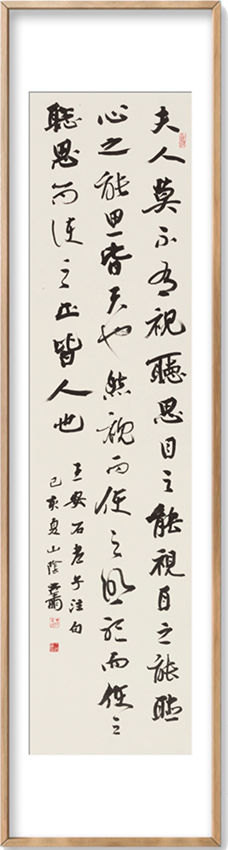 夫人莫不有視聽思目之能視耳之能聽
心之能思皆天也然視而使之明聽而使之
聰思而使之正皆人也
王安石老子注句
己亥夏山陰